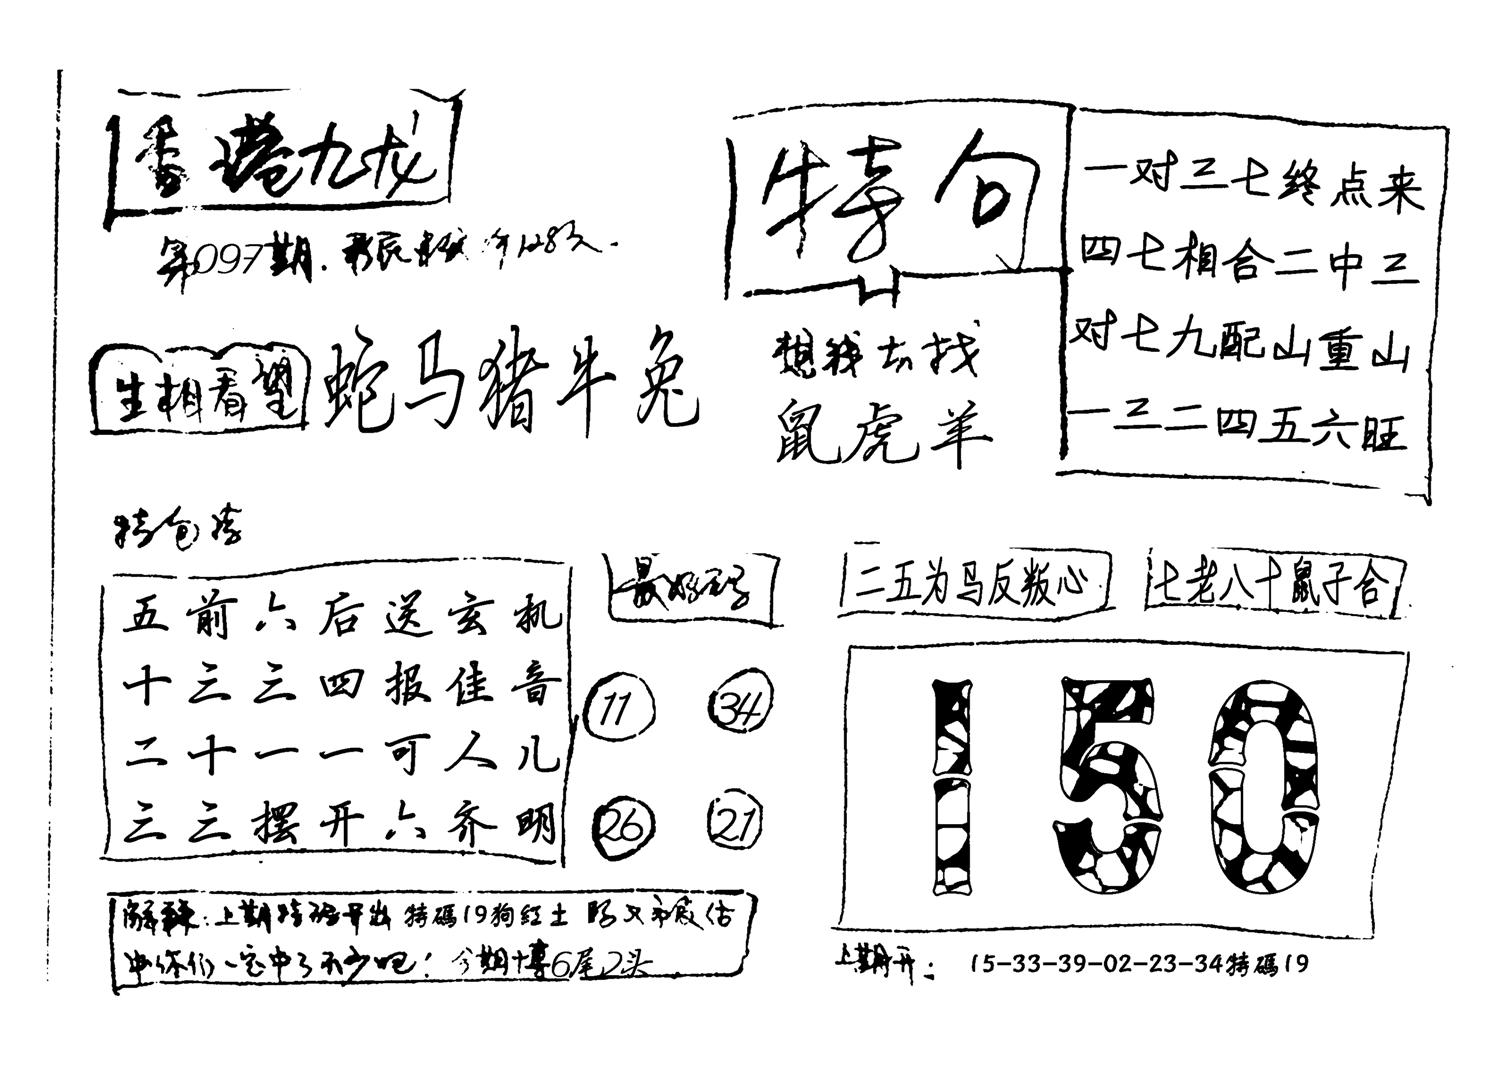 香港九龙
第097期.
生相看望 蛇马猪牛兔
特句
想钱去找
鼠虎羊
一对三七终点来
四七相合二中三
对七九配山重山
一三二四五六旺
特包
五前六后送玄机
十三三四报佳音
二十一一可人儿
三三摆开六齐明
最好码
11 34
26 21
二五为马反叛心
七老八十鼠子合
150
上期特码开出特碼19狗红土
冲你们一定中了不少吧！今期博6尾2头
上期开： 15-33-39-02-23-34特碼19